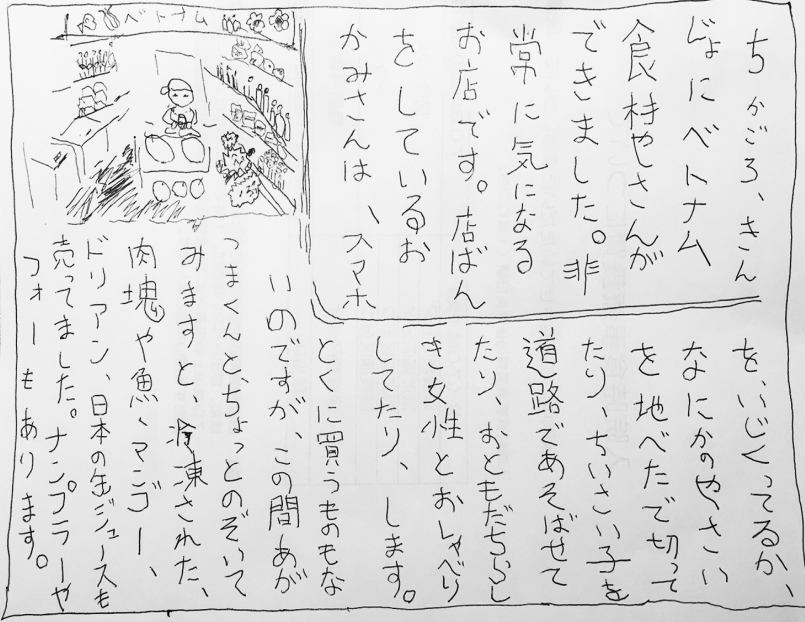 ベトナム
ちかごろ、きん
じょにベトナム
食材やさんが
できました。非
常に気になる
お店です。店ばん
をしているお
かみさんは、スマホ
を、いじくってるか、
なにかのやさい
を地べたで切って
たり、ちいさい子を
道路であそばせて
たり、おともだちらし
き女性とおしゃべり
してたり、します。
とくに買うものもな
いのですが、この間あが
つまくんと、ちょっとのぞいて
みますと冷凍された、
肉塊や魚、マンゴー、
ドリアン、日本の缶ジュースも
売ってました。ナンプラーや
フォーもあります。